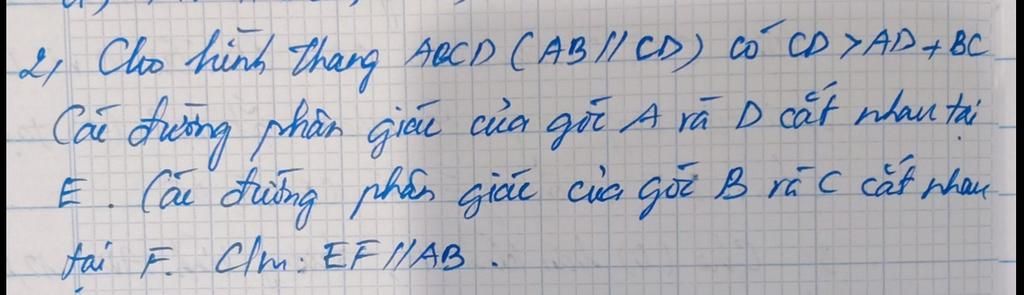 2, Cho hình thang ABCD (AB // CD) có CD > AD + BC
Các đường phân giác của góc A và D cắt nhau tại
E. Các đường phân giác của góc B và C cắt nhau
tại F. C/m: EF // AB.